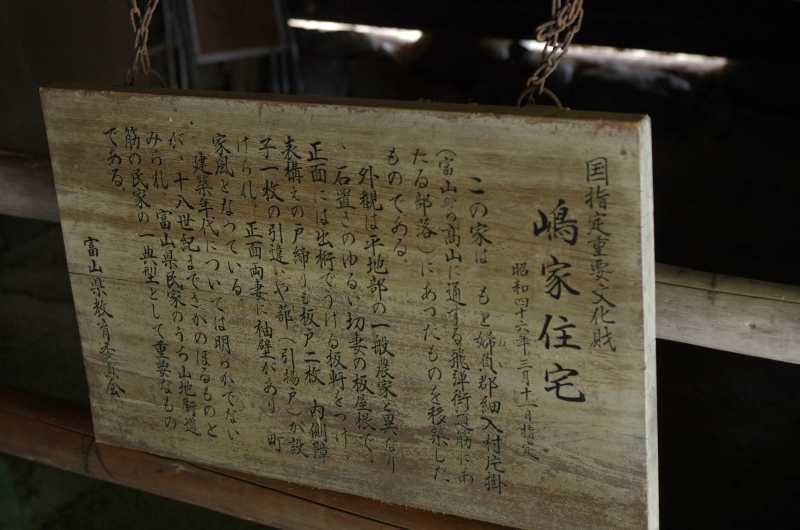 国指定重要文化財
嶋家住宅
昭和四十六年三月十一日指定
この家は もと婦負郡細入村片掛
(富山から高山に通ずる飛弾街道筋にあ
たる部落)にあったものを移築した
ものである
外観は平地部の一般農家と異なり
、石置きのゆるい切妻の板屋根で、
正面には出桁でうける板軒をつけ
表構えの戸締りも板戸二枚 内側障
子一枚の引違いや蔀(引揚戸)が設
けられ 正面両妻に袖壁があり 町
家風となっている。
建築年代については明らかでない
が、十八世紀までさかのぼるものと
みられ 富山県民家のうち山地街道
筋の民家の一典型として重要なもの
である。
富山県教育委員会